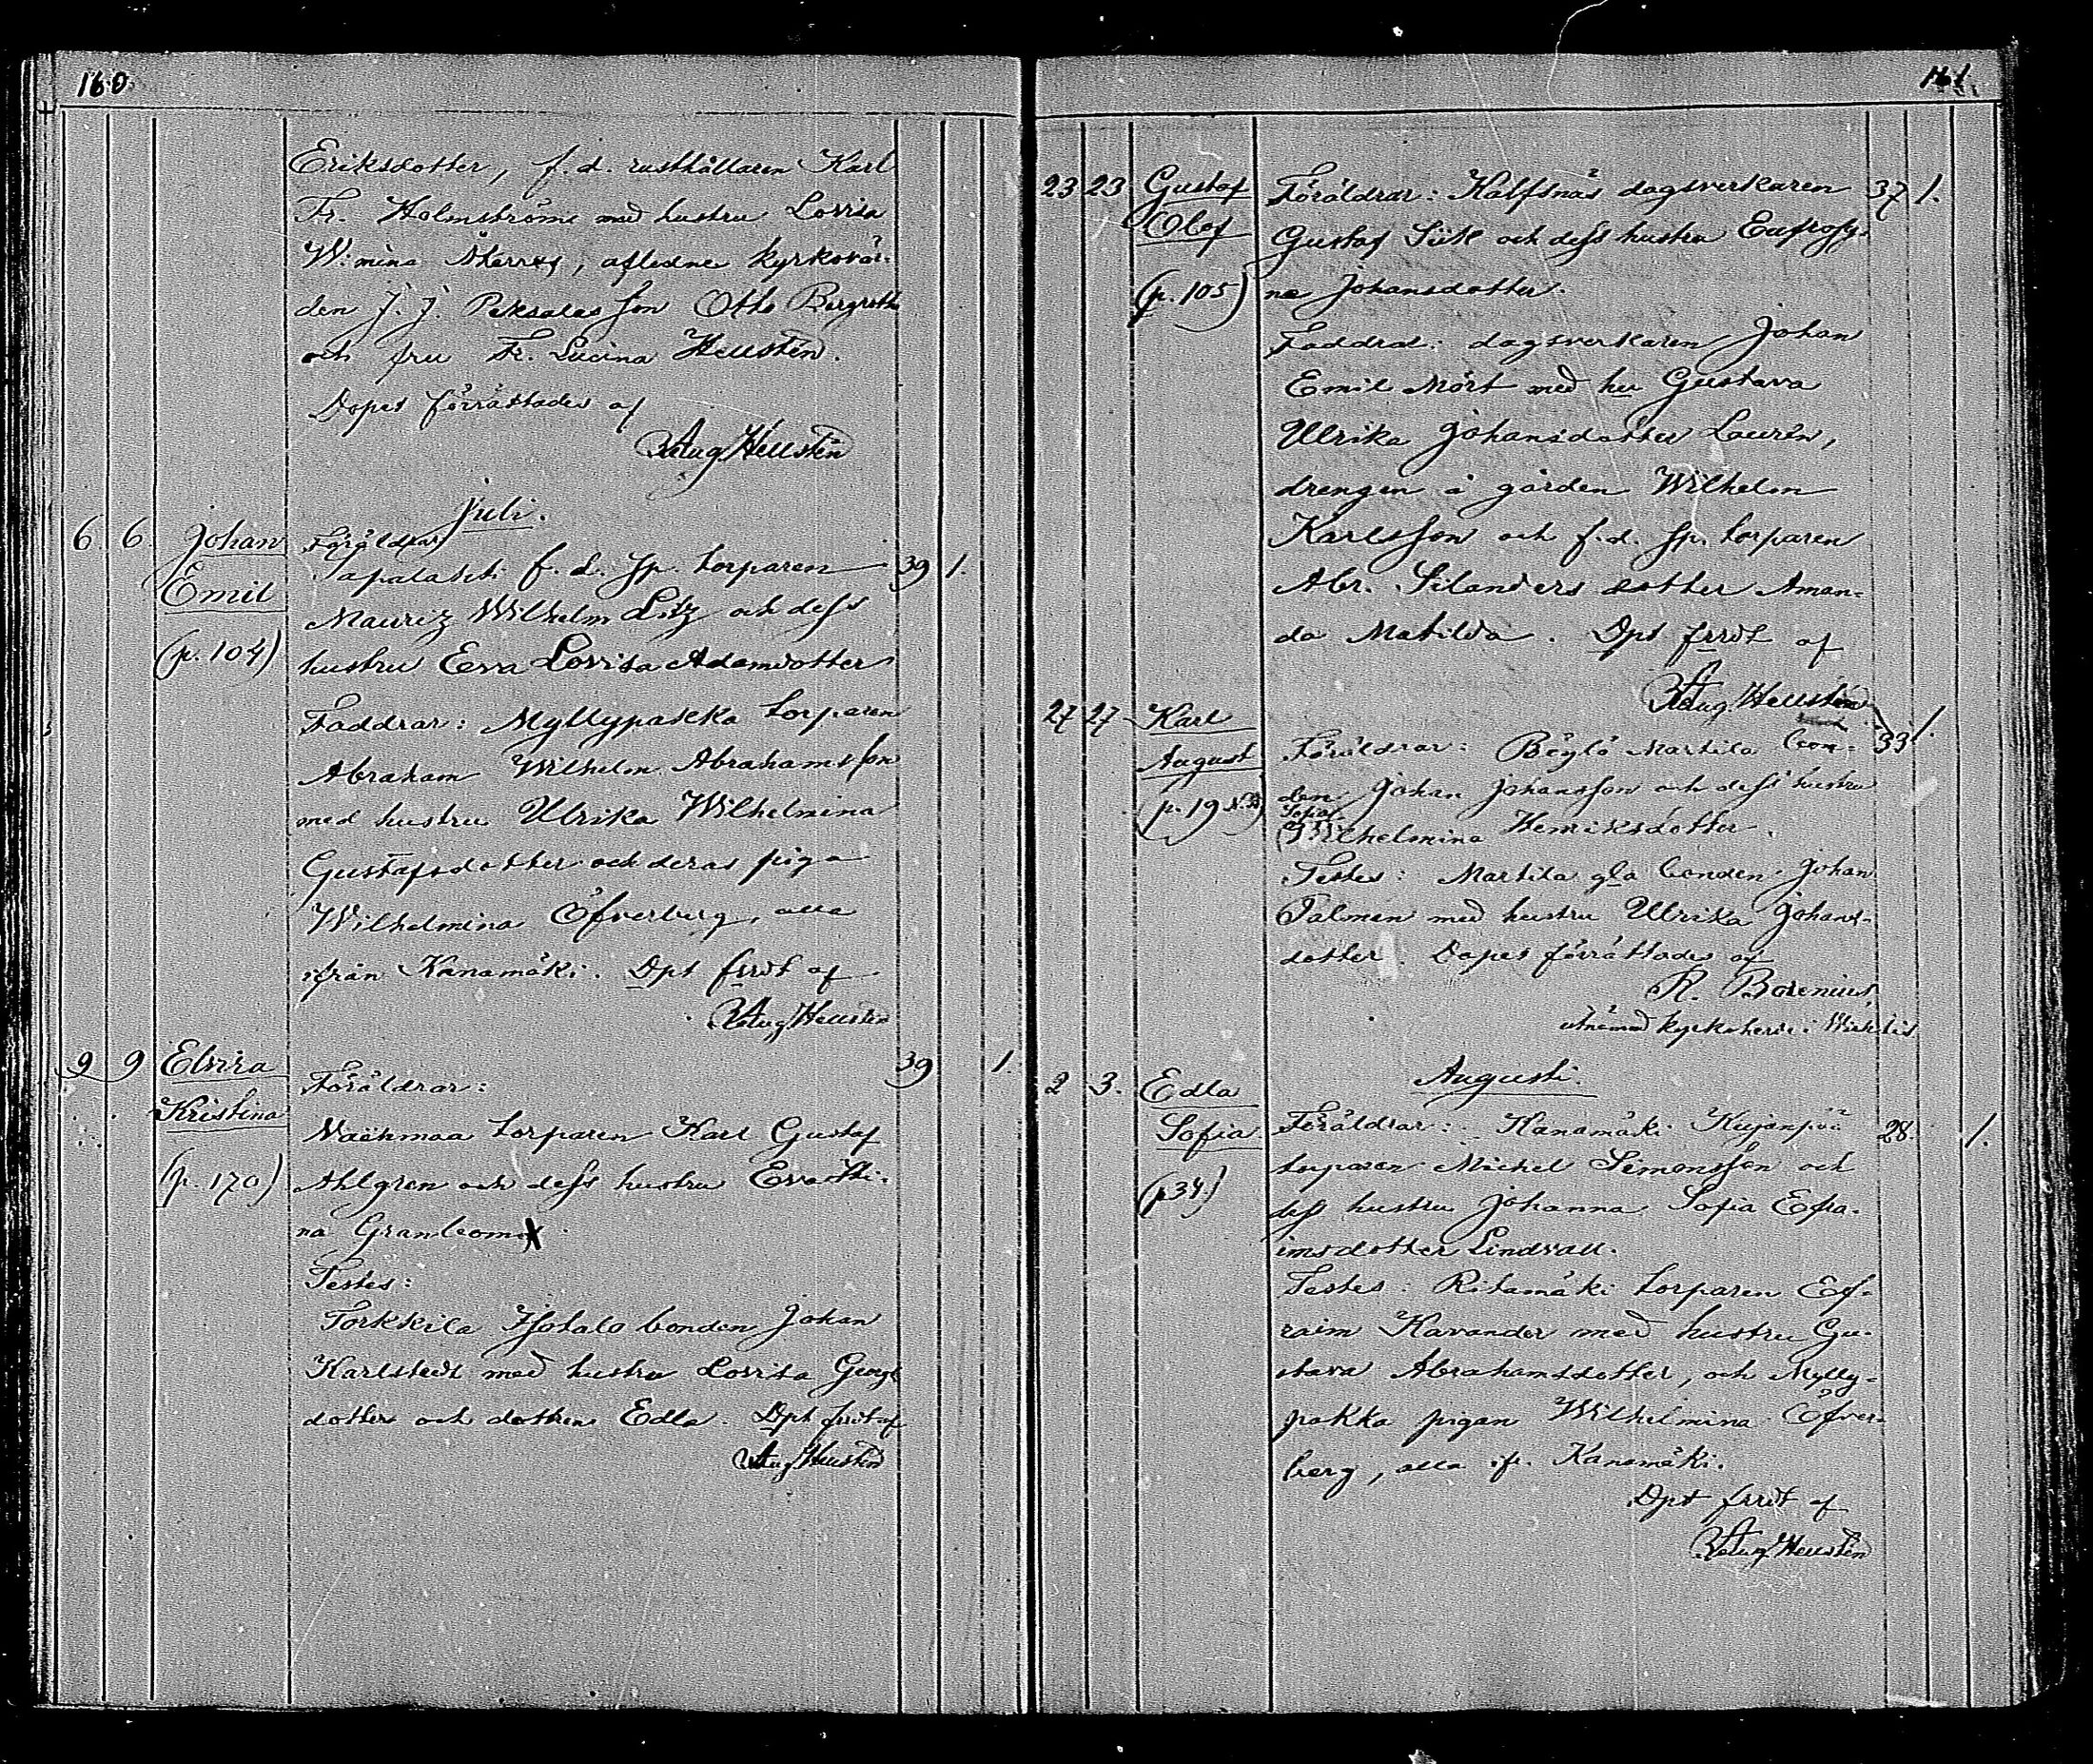 160
Eriksdotter, f.d. rusthållaren Karl
Fr. Holmström med hustru Lovisa
W:mina, aflednes kyrkovär-
den J. J. Peksalas son Otto Bergroth
och fru Fr. Lucina Hellstén.
Dopet förrättades af
Aug Hellstén
Juli.
6. 6. Johan Föräldrar
Sapalahti f.d. sp. torparen 39 1.
Emil
Mauritz Wilhelm Litz och dess
(p. 104) hustru Eva Lovisa Adamsdotter
Faddrar: Myllypakka torparen
Abraham Wilhelm Abrahamsson
med hustru Ulrika Wilhelmina
Gustafsdotter och deras piga
Wilhelmina Öfverberg, alla
ifrån Kanamäki. Dpt frrdt af
Aug Hellstén
9 9 Elvira Föräldrar: 39 1.
Kristina
Naehmaa torparen Karl Gustaf
(p. 170) Ahlgren och dess hustru Eva Sti-
na Granbom
Testes:
Torkkila Isotalo bonden Johan
Karlstedt med hustru Lovisa Georgs
dotter och dottren Edla. Dpt frrdt af
Aug Hellstén
161.
23 23 Gustaf Föräldrar: Kalfsnäs dagsverkaren 37 1.
Olof Gustaf Siik och dess hustru Eufrosy-
(p. 105) na Johansdotter.
Faddrar: dagsverkaren Johan
Emil Mört med hu Gustava
Ulrika Johansdotter Laurén,
drengen å gården Wilhelm
Karlsson och f.d. sp. torparen
Abr. Silanders dotter Aman-
da Matilda. Dpt frrdt af
Aug Hellstén
27 27 Karl
August Föräldrar: Böylä Martila bon- 33 1.
(p. 19 den Johan Johansson och dess hustru
Sofia
Wilhelmina Henriksdotter.
Testes: Martila gla bonden Johan
Salmen med hustru Ulrika Johans-
dotter. Dopet förrättades af
R. Borenius,
utnämnd kyrkoherde i Wichtis
Augusti.
2 3. Edla
Sofia Föräldrar: Kanamäki Kujanpää 28. 1.
torparen Mickel Simonsson och
(p 34.) dess hustru Johanna Sofia Efra-
imsdotter Lindvall.
Testes: Ritamäki torparen Ef-
raim Kavander med hustru Gu-
stava Abrahamsdotter, och Mylly-
pakka pigan Wilhelmina Öfver-
berg, alla ifr. Kanamäki.
Dpt frrdt af
Aug Hellstén